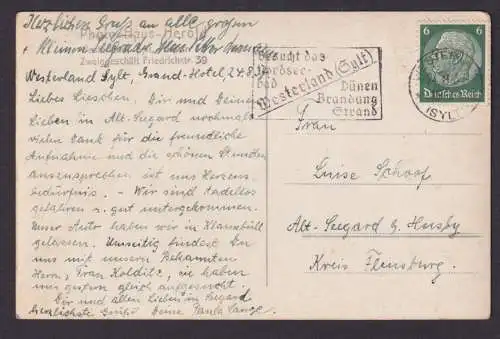 Herzlichen Gruß an alle großen
Photo-Haus-Herold
Zweiggeschäft Friedrichstr. 39
Westerland Sylt, Grand-Hotel, 24.8.
Liebes Lieschen! Dir und Deinen
Lieben in Alt-Seegard nochmals
vielen Dank für die freundliche
Aufnahme und die schönen Stunden
auszusprechen ist uns Herzens-
bedürfnis. – Wir sind tadellos
gefahren u. gut untergekommen.
Unser Auto haben wir in Klanxbüll
gelassen. Umseitig findest Du
uns mit unsern Bekannten
Herrn, Frau Kolditz, sie haben
uns gestern gleich aufgesucht.
Dir und allen Lieben in Seegard
herzlichste Grüße Deine Paula Lange.
Besucht das
Nordsee-
bad
Westerland (Sylt)
Dünen
Brandung
Strand
6 6
Deutsches Reich
(SYLT)
Frau
Luise Schoof
Alt-Seegard b. Husby
Kreis Flensburg.